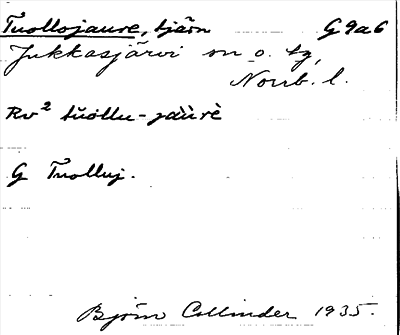 Tuollojaure, tjärn G9a6
Jukkasjärvi sn o. tg,
Norrb. l.
Rv² tŭollu-jàùrè
G Tuolluj.
Björn Collinder 1935.